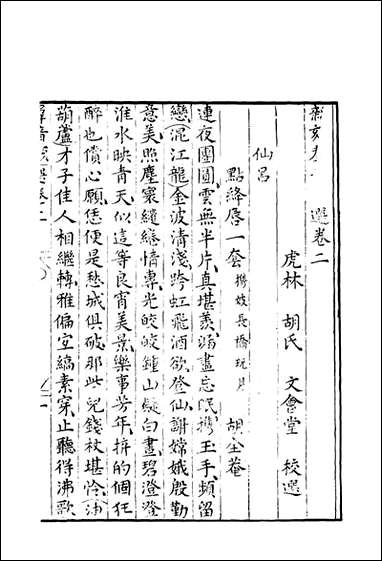 選卷二
虎林 胡氏 文會堂 校選
仙呂
點絳唇一套 攜妓長橋玩月 胡全菴
連夜團圓雲無半片真堪羨痛盡忘眠攜玉手頻留
戀混江龍金波清淺跨虹飛酒欲登仙謝嫦娥殷勤
意美照塵寰繾綣情專光皎皎鍾山疑白晝碧澄澄
淮水映青天似這等良宵美景樂事芳年拚的個狂
醉也償心願恁便是愁城俱破那些兒錢杖堪怜油
葫蘆才子佳人相繼轉雅偏宜縞素穿止聽得沸歌